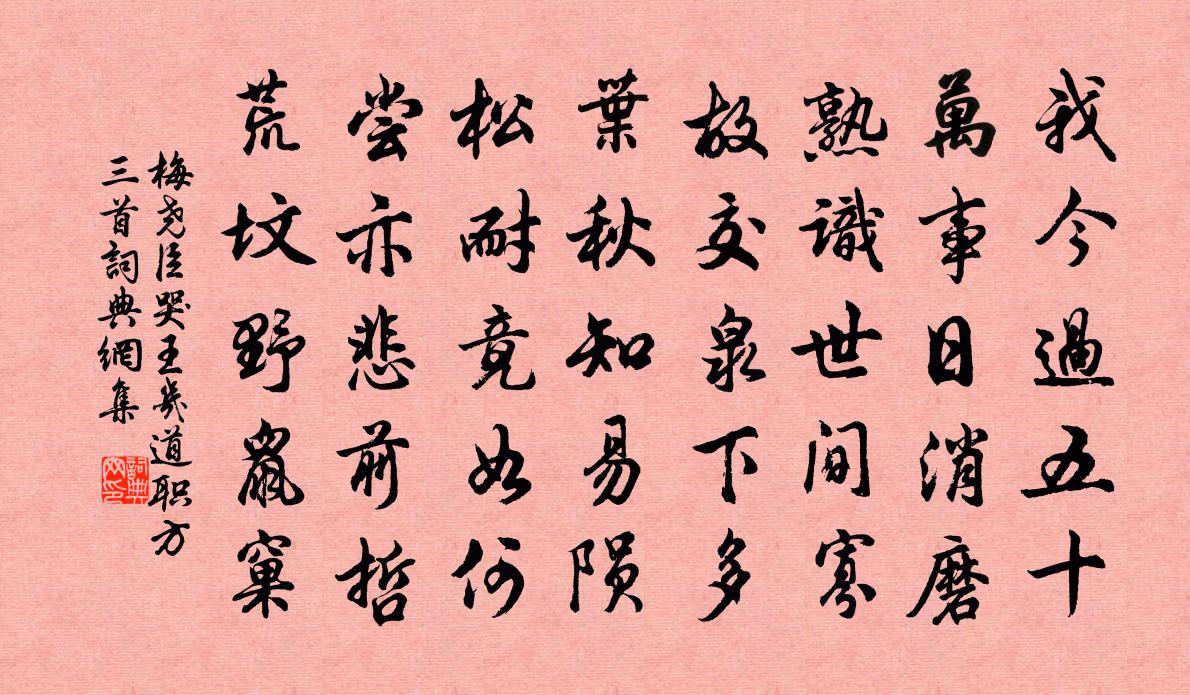 我今過五十
萬事日消磨
熟識世间寡
故交泉下多
葉秋知易陨
松耐竟如何
尝亦悲前哲
荒坟野鼠窠
梅尧臣哭王幾道职方
三首詞典網集
詞典网印